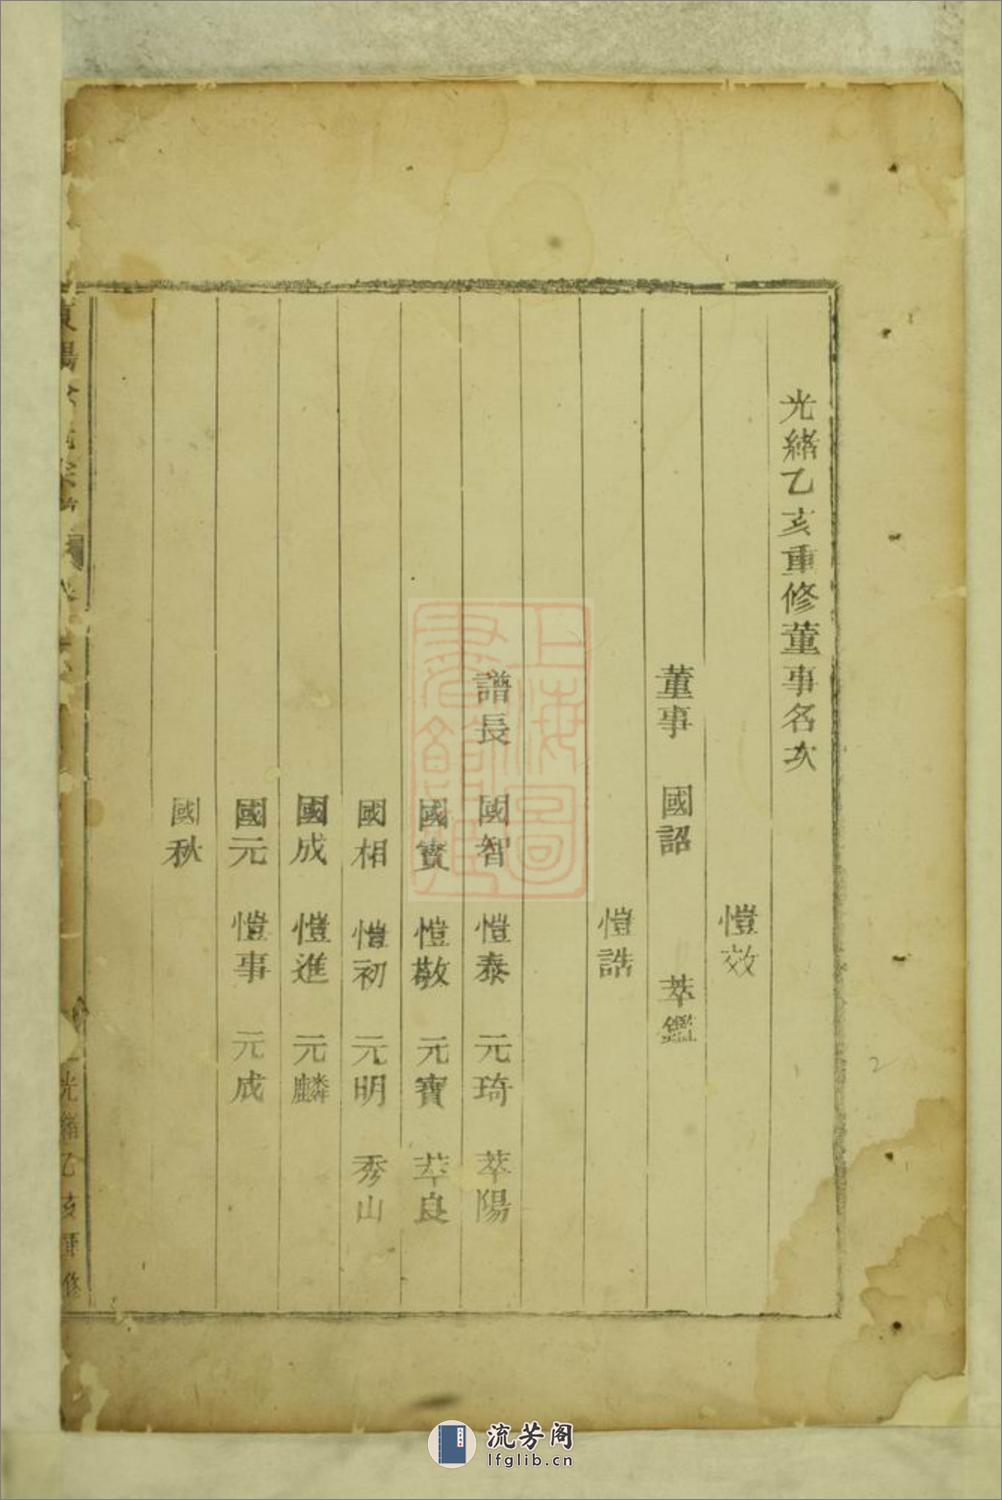 光緒乙亥重修董事名次
愷效
董事 國詔 萃鑑
愷誥
譜長 國智 愷泰 元琦 萃陽
國賓 愷敬 元寶 萃良
國相 愷初 元明 秀山
國成 愷進 元麟
國元 愷事 元成
國秋
光緒乙亥重修
上海圖
書館藏
流芳阁
lfglib.cn